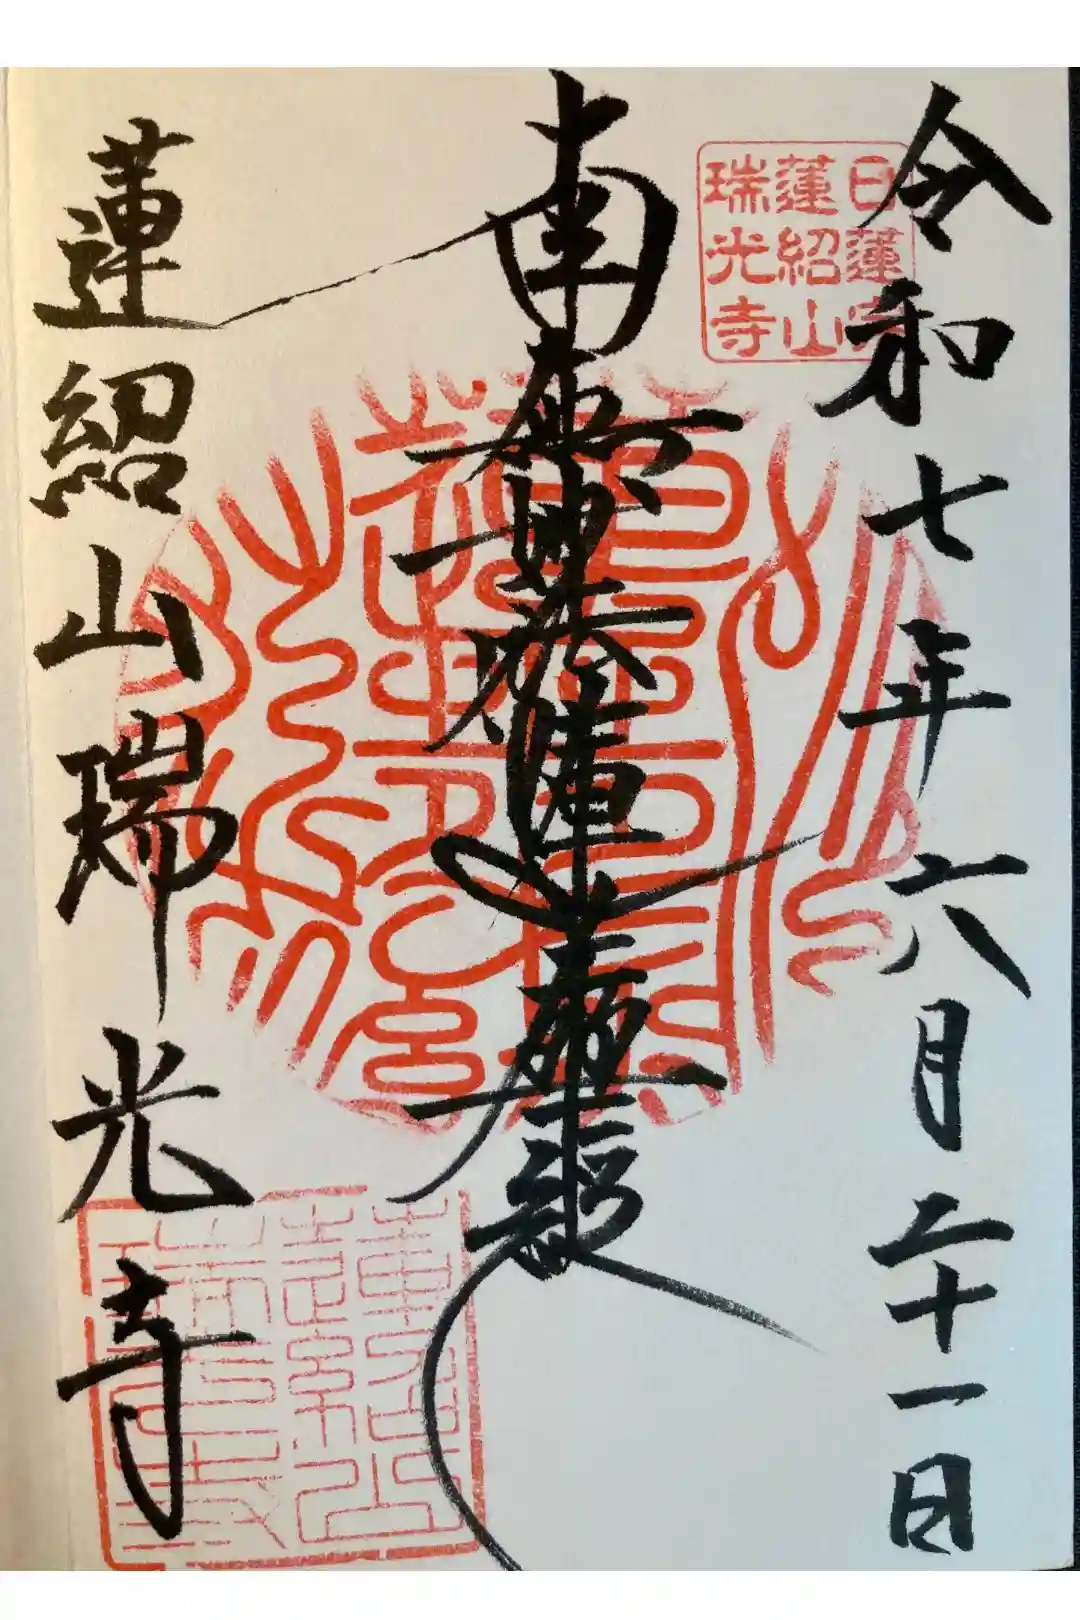 令和七年六月二十一日
日蓮宗
蓮紹山
瑞光寺
南無妙法蓮華経
蓮紹山瑞光寺